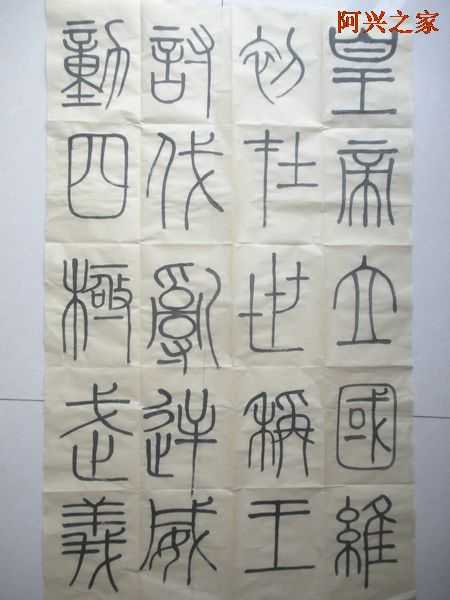 阿兴之家
皇帝立國維
初在世稱王
討伐亂逆威
動四極武義